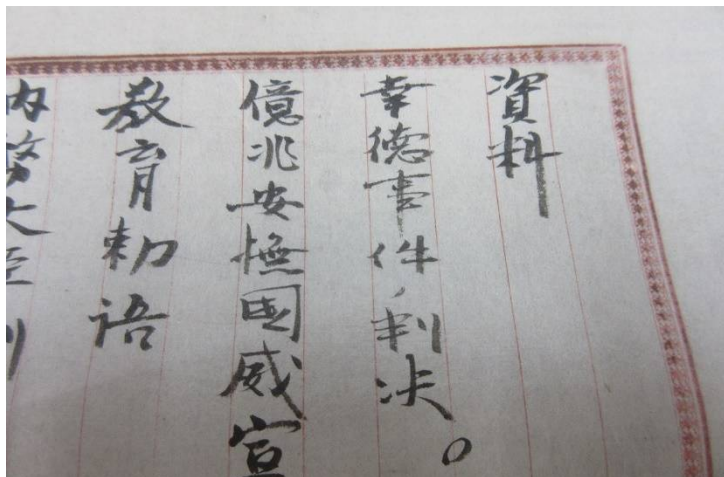 資料
幸徳事件ノ判決。
億兆安撫国威宣
教育勅語
内務大臣